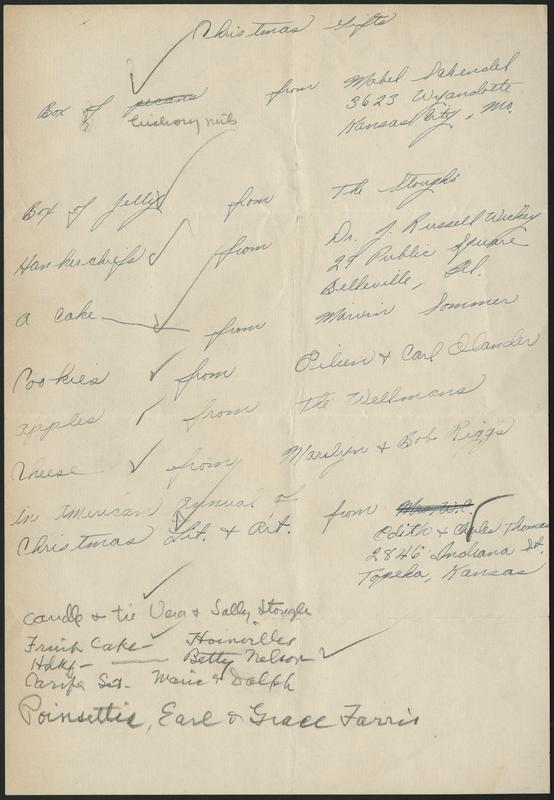 Christmas Gifts
Box of pecans from Mabel Schendel
hickory nuts 3623 Wyandotte
Kansas City, Mo.
Box of Jelly from The Stoughs
Hankerchiefs from Dr. J. Russell
29 Public Square
Belleville, Ill.
a Cake from Marvin Sommer
Cookies from Eileen & Carl Olander
apples from The Wellmans
Cheese from Marilyn & Bob Riggs
in American Annual of
Christmas Lit. & Art. from Mrs. W.C.
Edith & Charles Thomas
2846 Indiana St.
Topeka, Kansas
Candle & tie Vera & Sally Stough
Fruit Cake
Hdkf - Betty Nelson
Set - Marie & Dolph
Poinsettie, Earl & Grace Farris